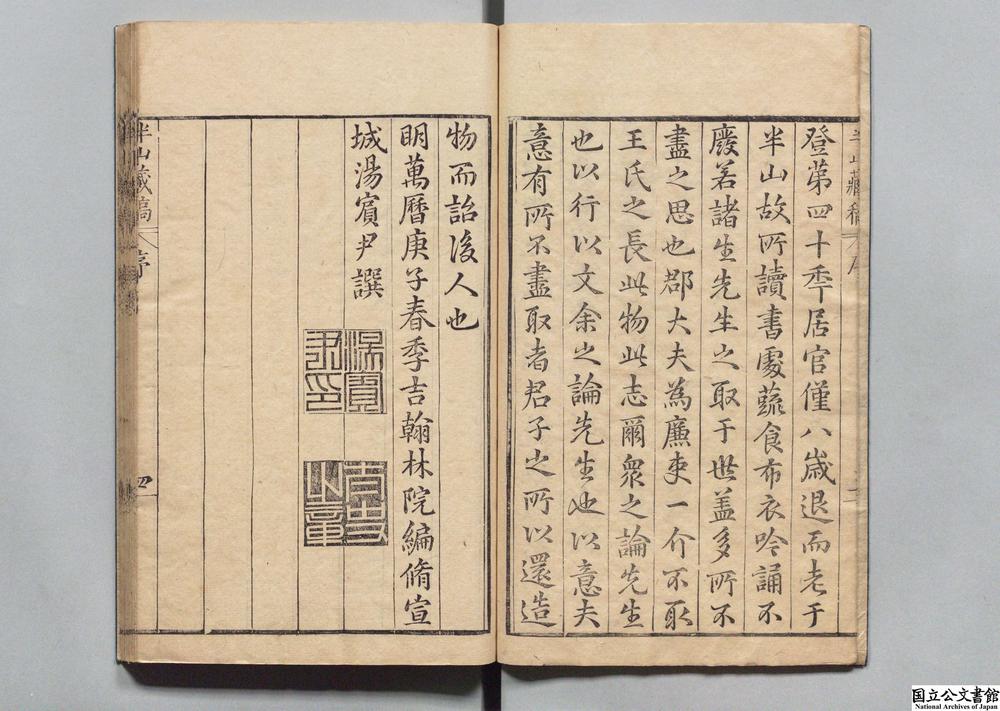 登第四十季居官僅八歲退而老于
半山故所讀書處蔬食布衣吟誦不
廢若諸生先生之取于世蓋多所不
盡之思也郡大夫為廉吏一介不取
王氏之長此物此志爾眾之論先生
也以行以文余之論先生也以意夫
意有所不盡取者君子之所以還造
物而詒後人也
明萬曆庚子春季吉翰林院編脩宣
城湯賓尹譔
湯賓尹印
半山藏稿 序
四
国立公文書館
National Archives of Japan